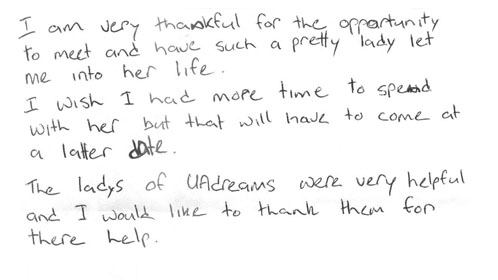 I am very thankful for the opportunity
to meet and have such a pretty lady let
me into her life.
I wish I had more time to spend
with her but that will have to come at
a latter date.
The ladys of UAdreams were very helpful
and I would like to thank them for
there help.